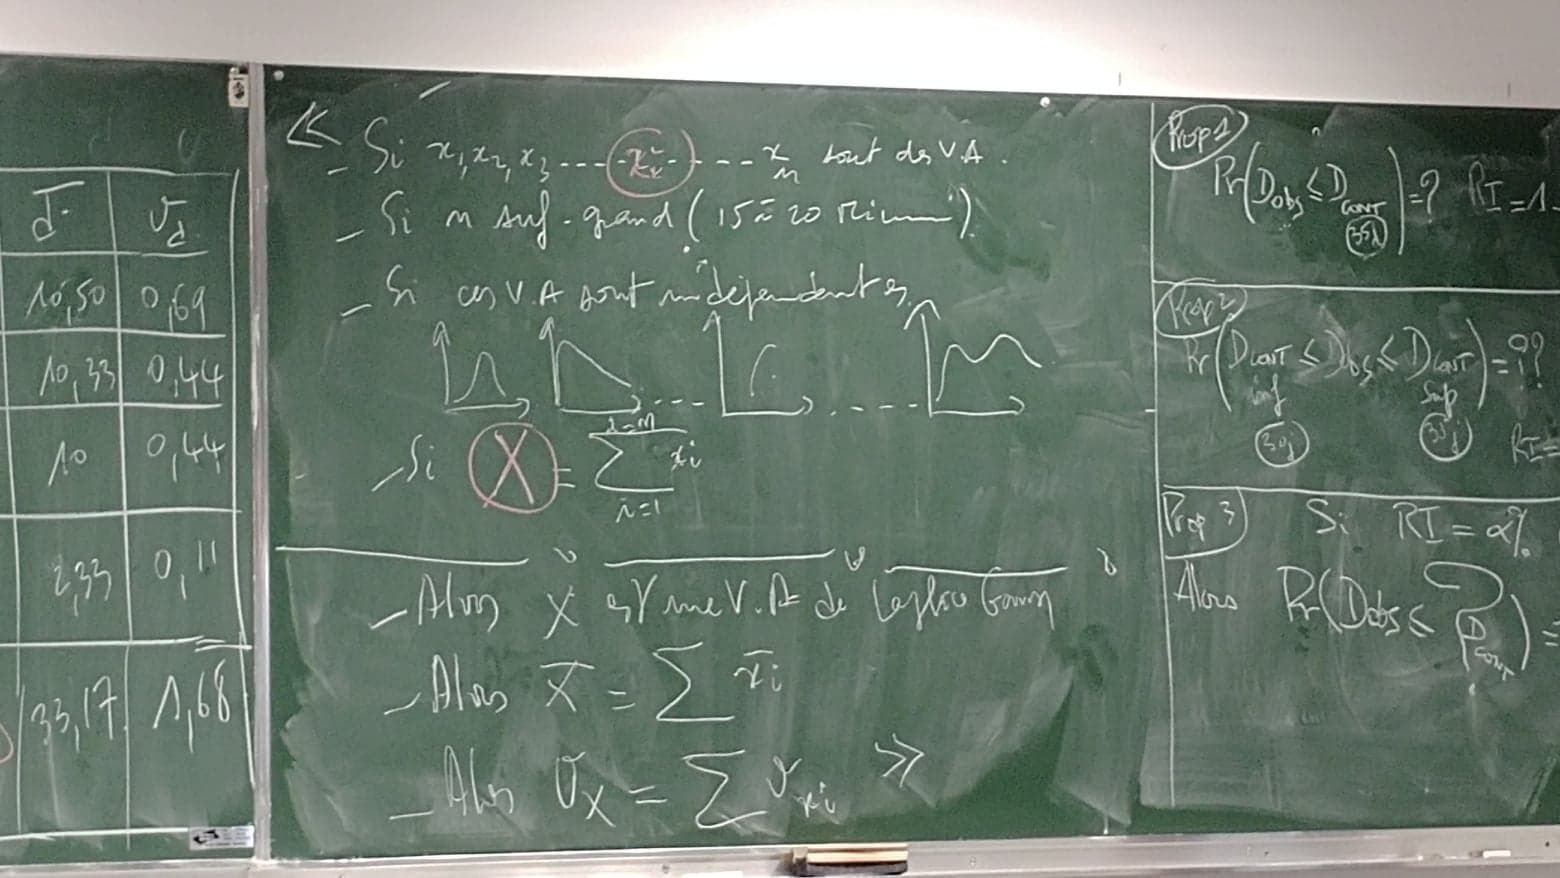 d̄ V_d
10,50 0,69
10,33 0,44
10 0,44
2,33 0,11
33,17 1,68
« - Si x₁, x₂, x₃ ... xᵢ ... xₙ sont des V.A.
- Si n suf. grand (15 à 20 Minimum)
- Si ces V.A sont indépendantes
- Si X = Σ xᵢ
i=n
i=1
- Alors X est une V.A de Laplace Gauss
- Alors X̄ = Σ x̄ᵢ
- Alors V_X = Σ V_xᵢ »
Prop 1
Pr(Dobs ≤ D_CONT) = ? RI = 1 -
35j
Prop 2
Pr(D_CONT inf ≤ Dobs ≤ D_CONT sup) = ??
30j 35j RI =
Prop 3 Si RI = α%
Alors Pr(Dobs ≤ D_CONT) =
?